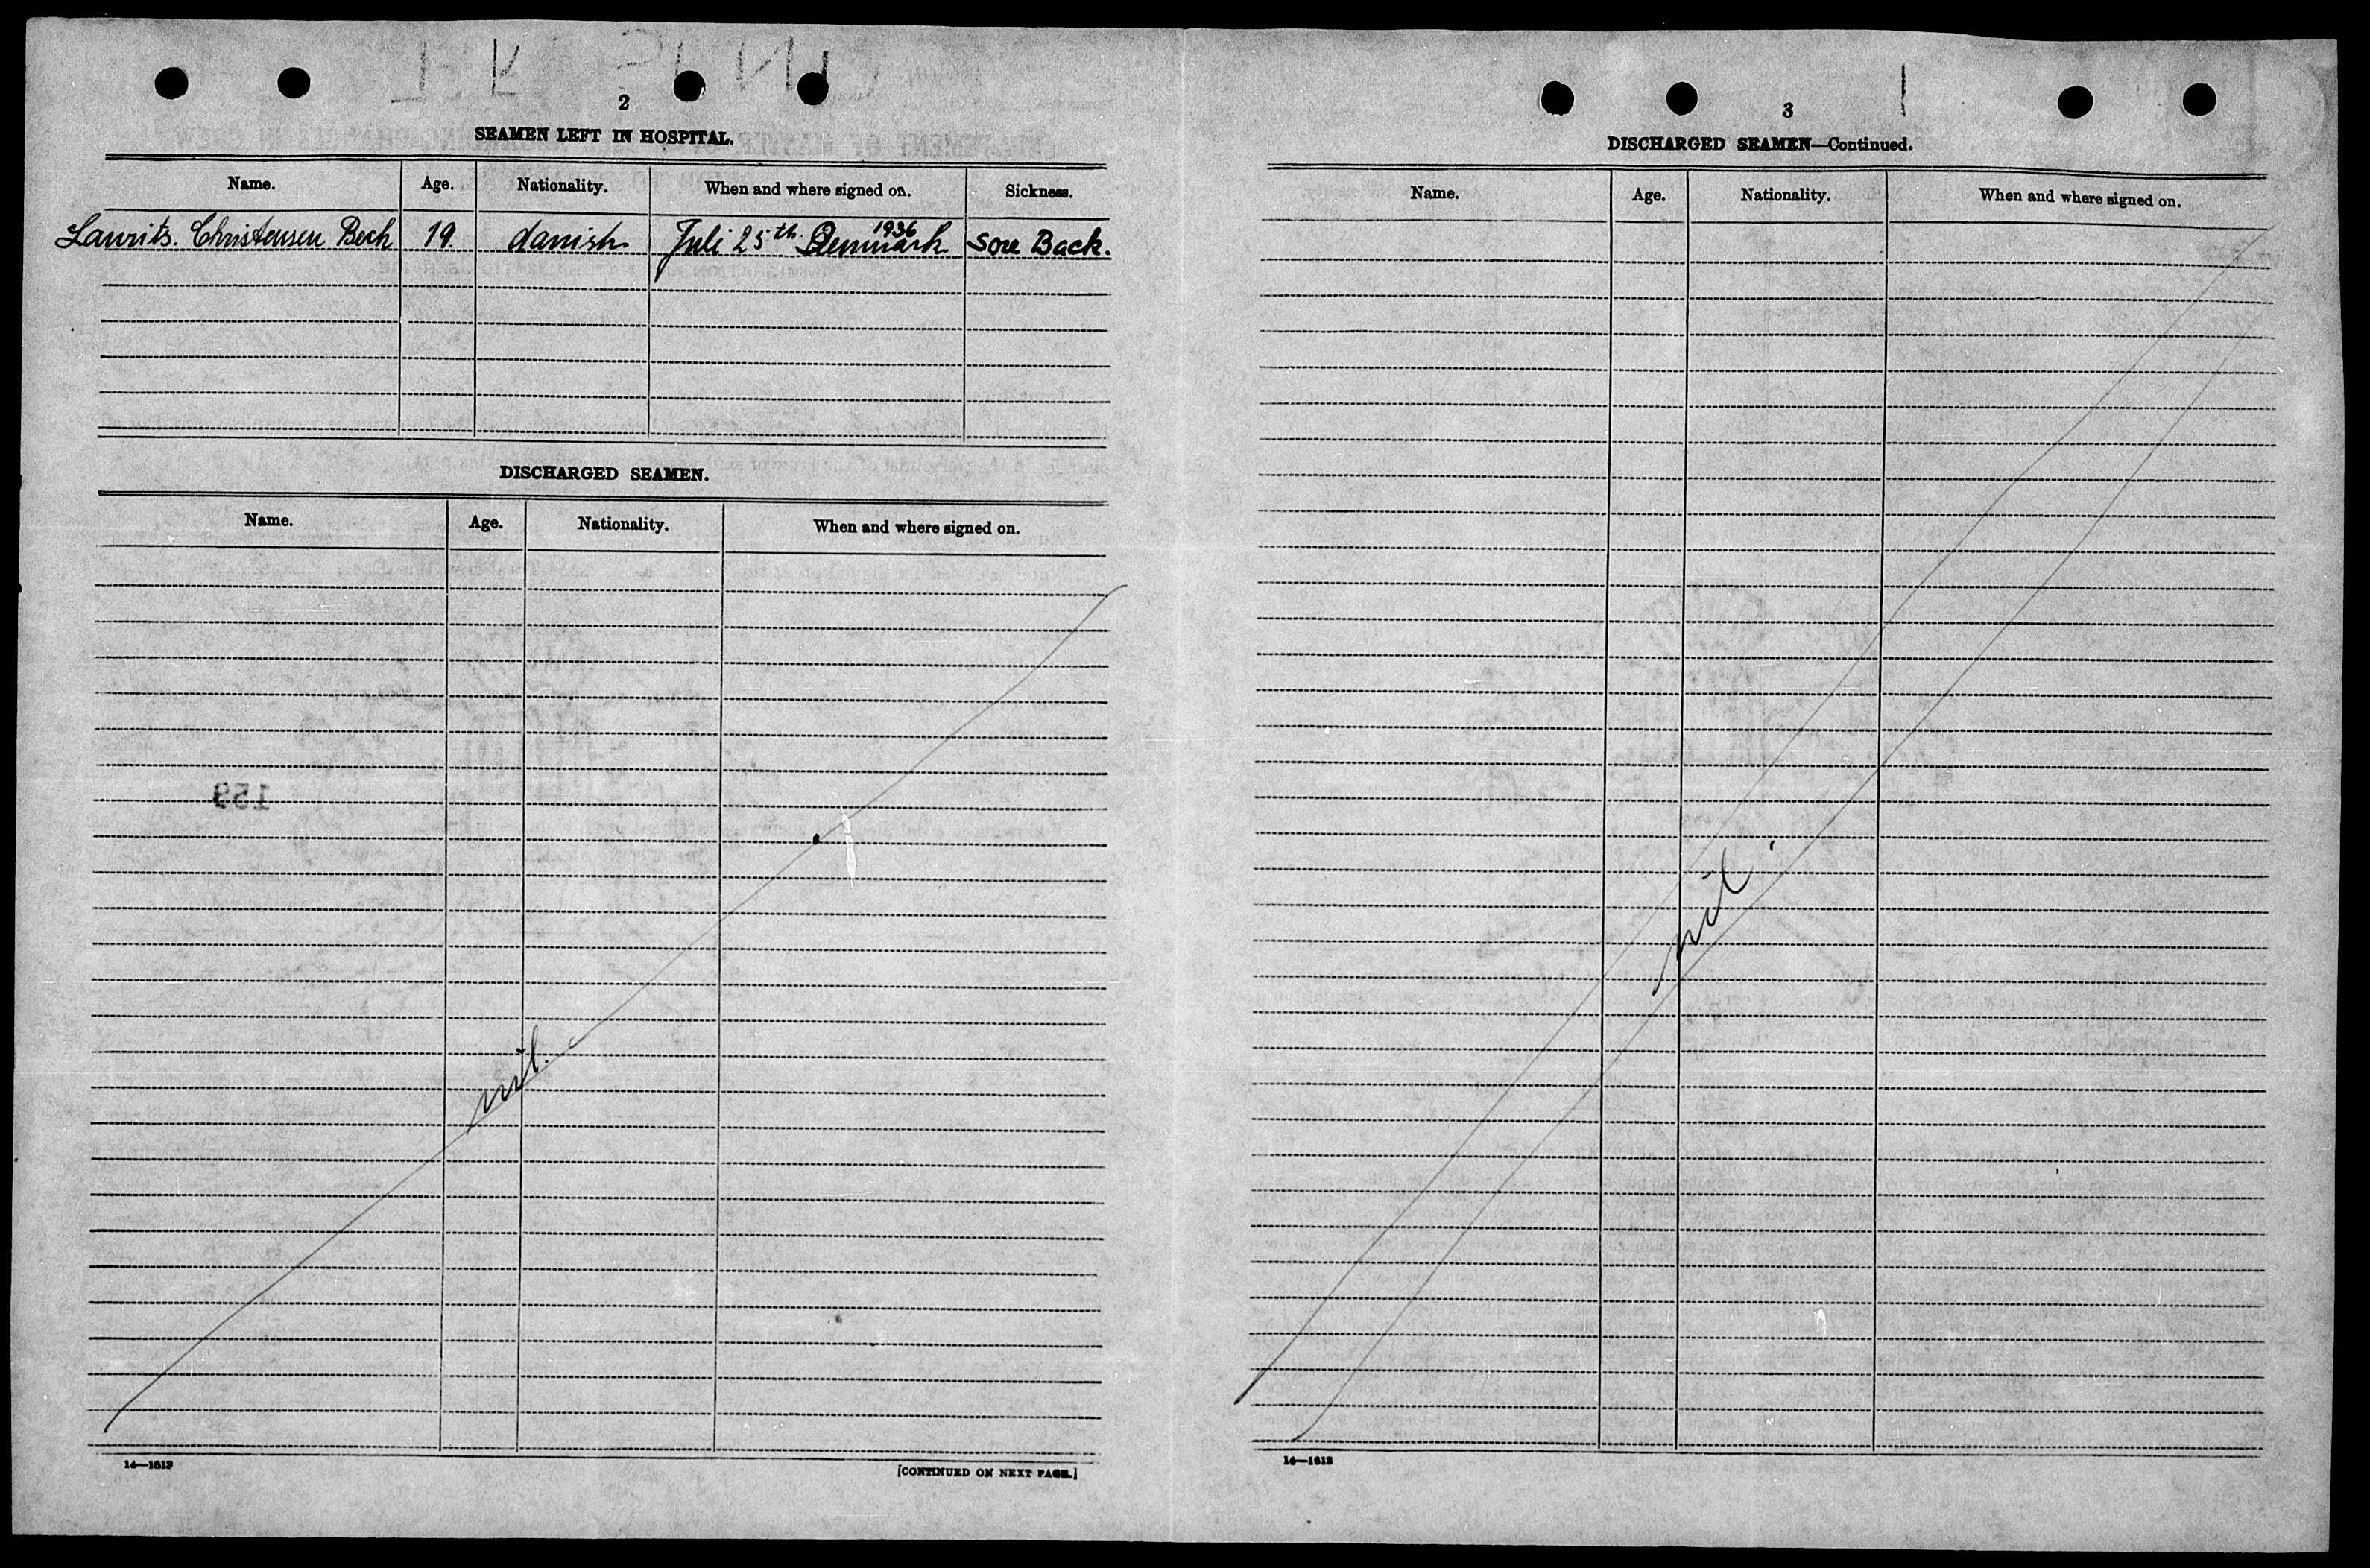 2
SEAMEN LEFT IN HOSPITAL.
Name. Age. Nationality. When and where signed on. Sickness.
Laurits. Christensen Bech 19. danish Juli 25th. Denmark 1936 Sore Back.
DISCHARGED SEAMEN.
Name. Age. Nationality. When and where signed on.
159
nil.
14—1613
[CONTINUED ON NEXT PAGE.]
3
DISCHARGED SEAMEN—Continued.
Name. Age. Nationality. When and where signed on.
nil.
14—1613